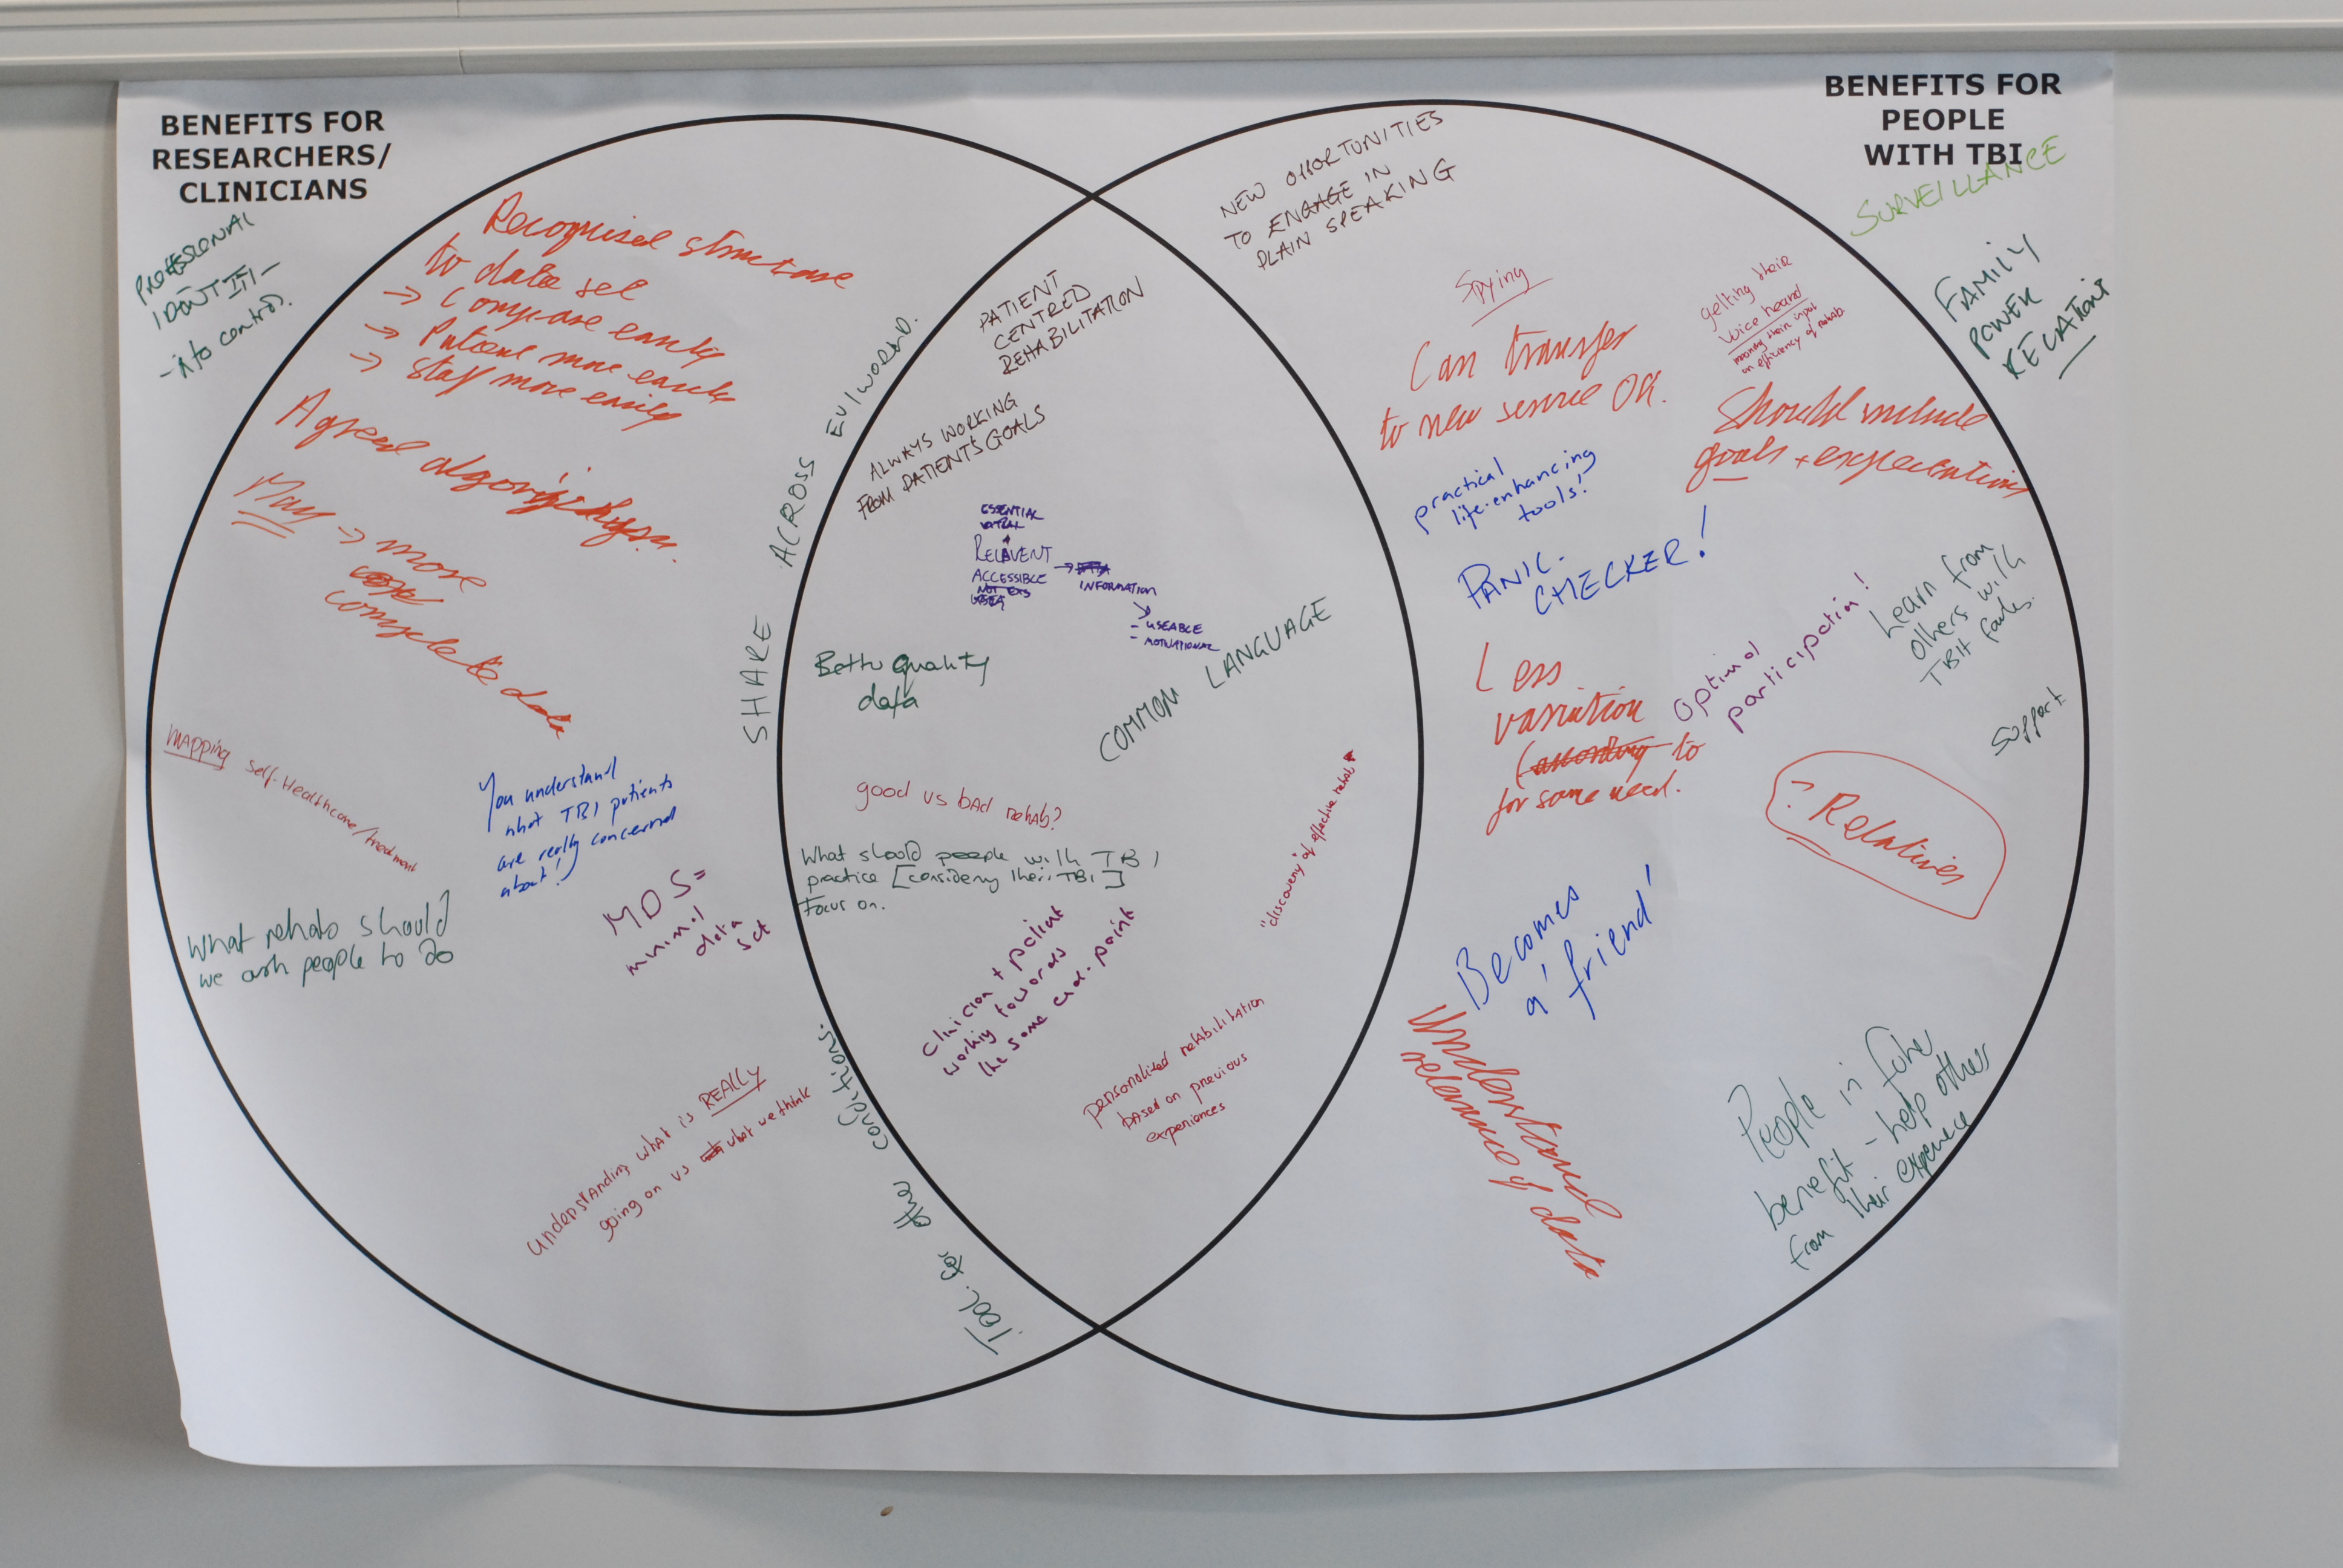 BENEFITS FOR
RESEARCHERS/
CLINICIANS
PROFESSIONAL
- to control.
Recognised structure
to data set
→ Compare easily
→ Patient more easily
→ Staff more easily
Agreed
May → more
complete data
MAPPING self-Healthcare/treatment
You understand
what TBI patients
are really concerned
about!
What rehab should
we ask people to do
MDS=
minimal
data
set
understanding what is REALLY
going on vs what we think
SHARE ACROSS EU/WORLD.
TOOL for other conditions.
PATIENT
CENTRED
REHABILITATION
ALWAYS WORKING
FROM PATIENT'S GOALS
ESSENTIAL
RELAVENT →
ACCESSIBLE INFORMATION
- USEABLE
- MOTIVATIONAL
Better quality
data
COMMON LANGUAGE
good vs bad rehab?
"discovery" of effective rehab
What should people with TBI
practice [considering their TBI]
Focus on.
clinician + patient
working towards
the same end-point
personalized rehabilitation
based on previous
experiences
BENEFITS FOR
PEOPLE
WITH TBI
SURVEILLANCE
FAMILY
POWER
RELATIONS
NEW OPPORTUNITIES
TO ENGAGE IN
PLAIN SPEAKING
Spying
getting their
voice heard
meaning their input
on efficiency of rehab
Can transfer
to new service OK.
Should include
goals + expectations
practical
life-enhancing
tools!
PANIC-
CHECKER!
Less
variation
(according to
for same need.
optimal
participation!
Learn from
others with
TBI
support
? Relatives
Becomes
a 'friend'
Understand
relevance of data
People in future
benefit - help other
from their experience